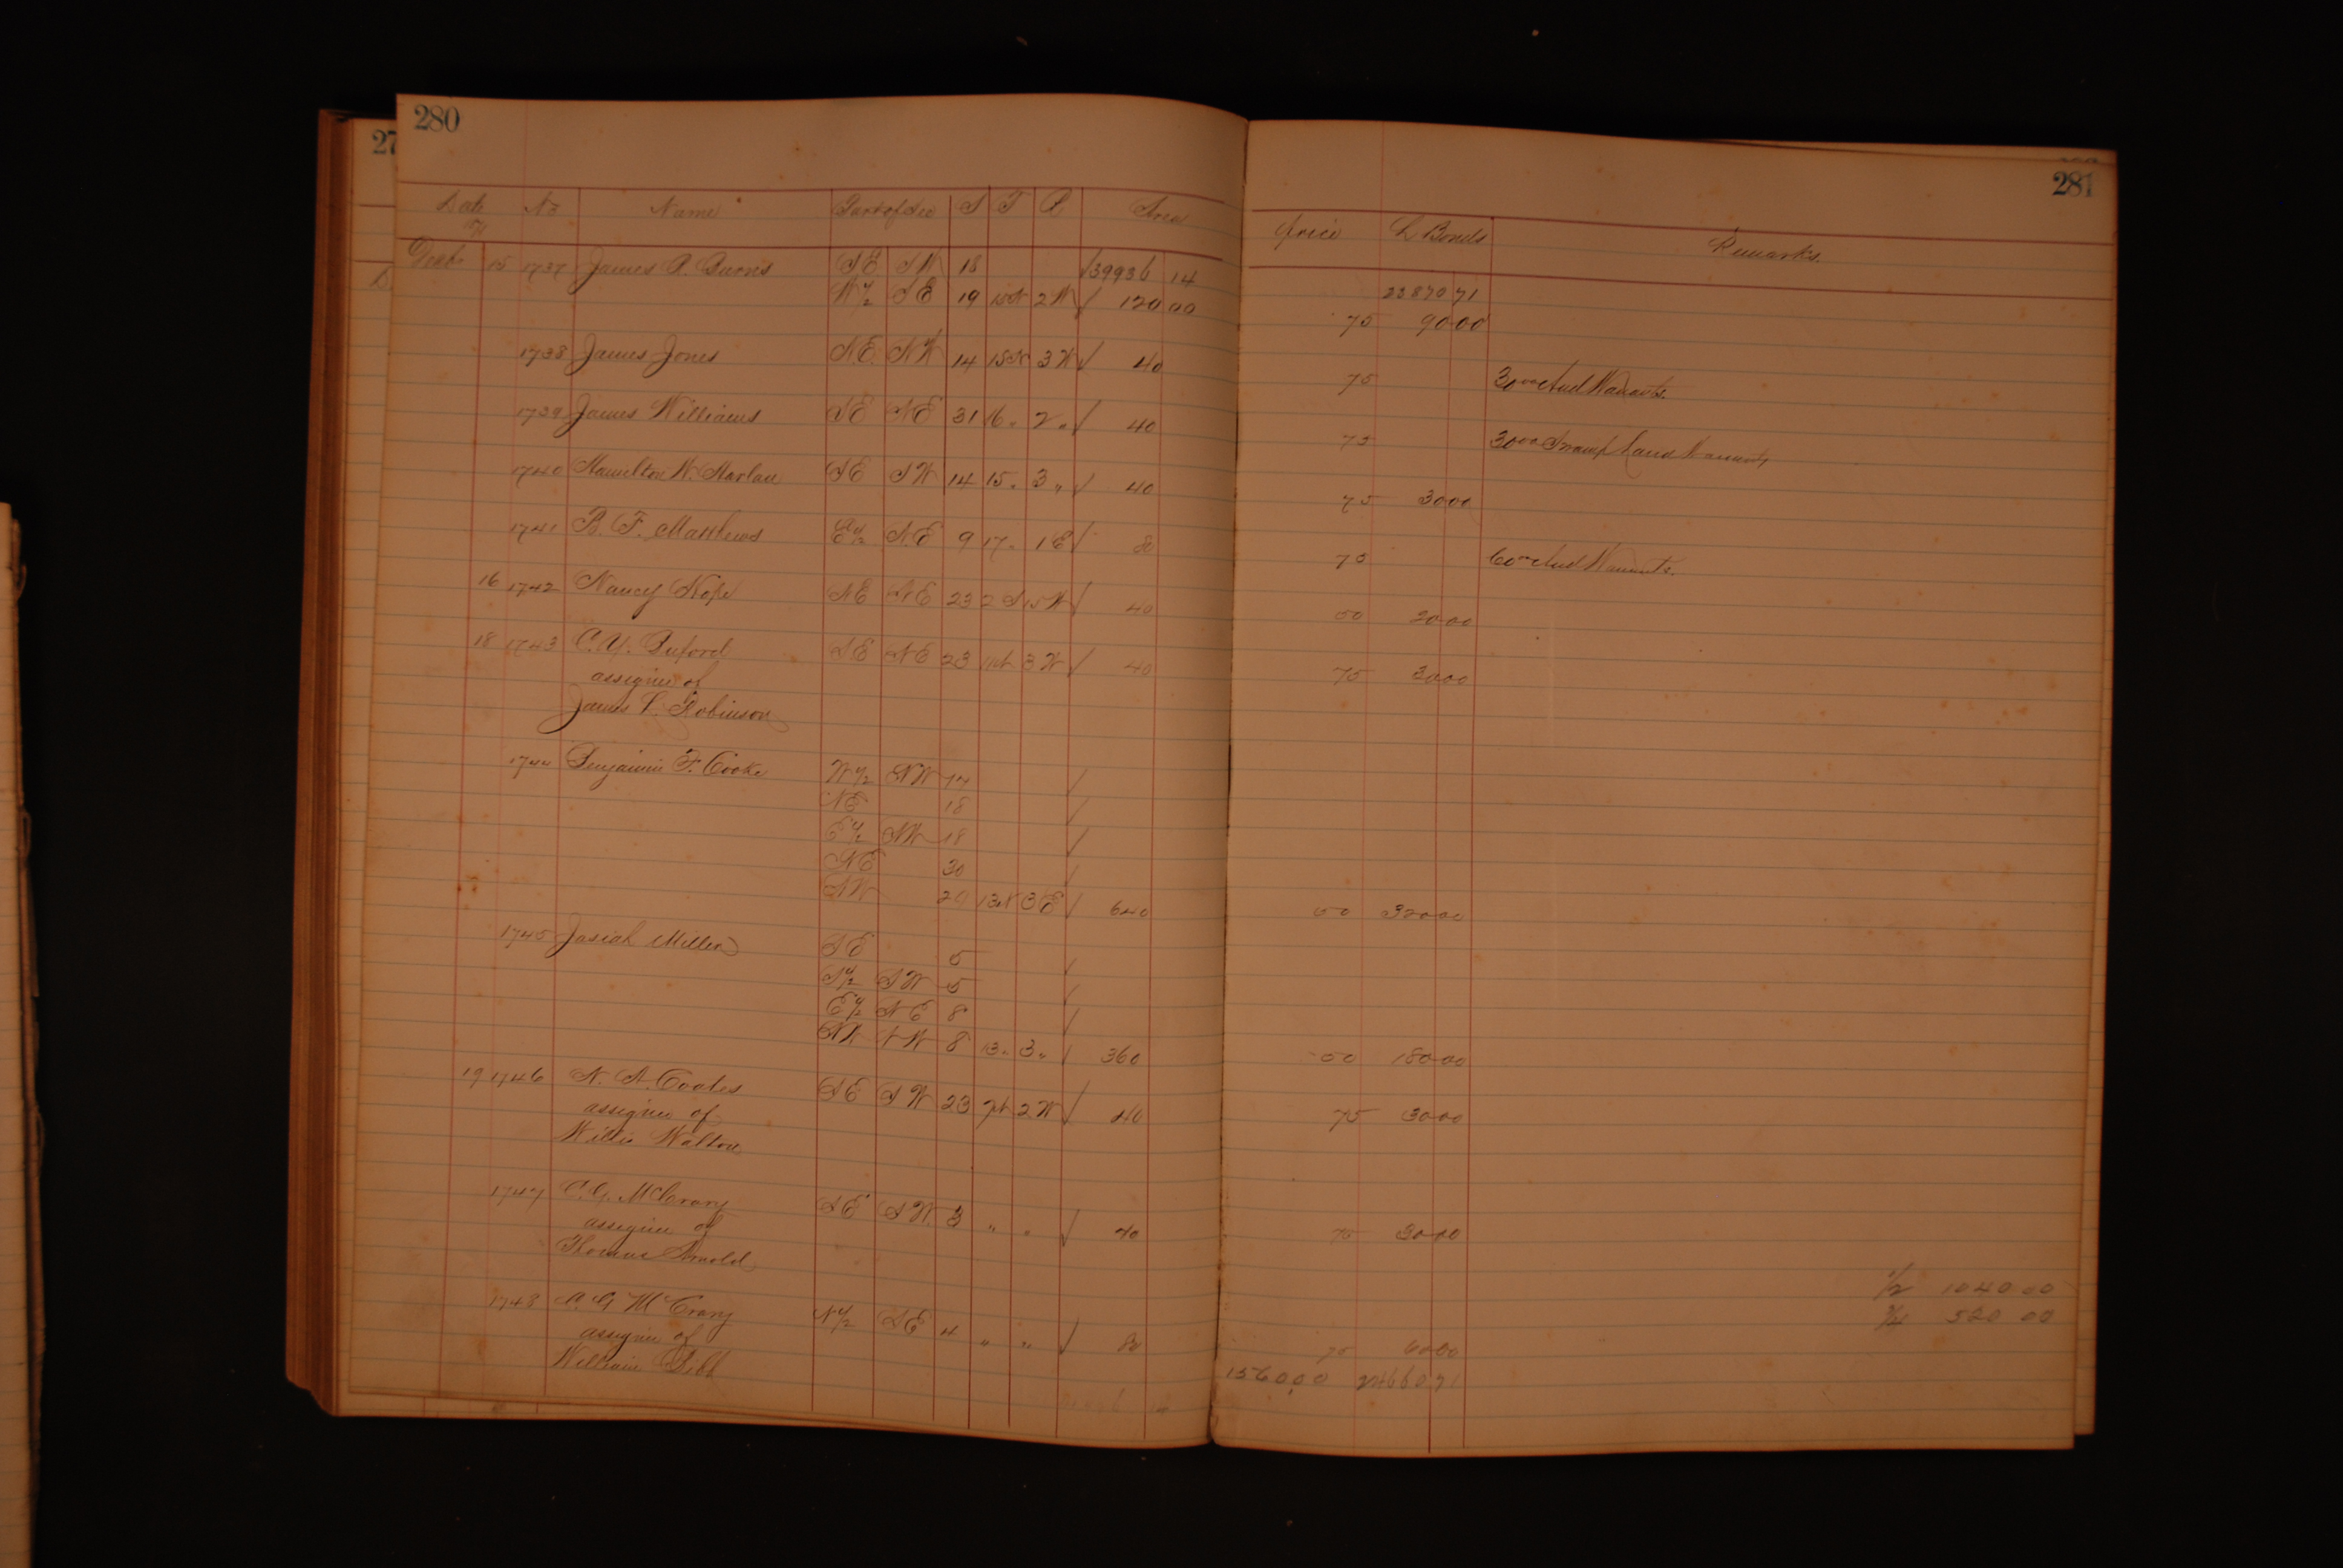 280
27
Date No Name Part of Sec S T R Area
Decbr 15 1737 James R. Burns SE SW 18 39936 14
W 1/2 SE 19 15N 2W √ 120 00
1738 James Jones NE NW 14 15N 3W √ 40
1739 James Williams SE NE 31 16 " 2 " √ 40
1740 Hamilton W. Harlan SE SW 14 15 " 3 " √ 40
1741 B. F. Matthews E 1/2 NE 9 17 " 1E √ 80
16 1742 Nancy Hope NE SE 23 2S 15W √ 40
18 1743 C. Y. Buford SE NE 23 11N 3W √ 40
assignee of
James L. Robinson
1744 Benjamin F. Cooke W 1/2 NW 17 √
NE 18 √
E 1/2 NW 18 √
NE 30 √
NW 20 13N 3E √ 640
1745 Josiah Miller SE 5 √
S 1/2 SW 5 √
E 1/2 NE 8 √
NW NW 8 13 " 3 " √ 360
19 1746 N. A. Coates SE SW 23 7N 2W √ 40
assignee of
Willis Walton
1747 C. G. McCrary SE SW 3 " " √ 40
assignee of
Thomas Arnold
1748 C. G. McCrary N 1/2 SE 4 " " √ 80
assignee of
William
281
Price L Bonds Remarks.
23870 71
75 90 00
75 30 00 Aud Warrants.
75 30 00 Swamp Land Warrants
75 30 00
75 60 00 Aud Warrants.
50 20 00
75 30 00
50 320 00
50 180 00
75 30 00
75 30 00
1/2 1040 00
3/4 520 00
75 60 00
1560,00 24660 71